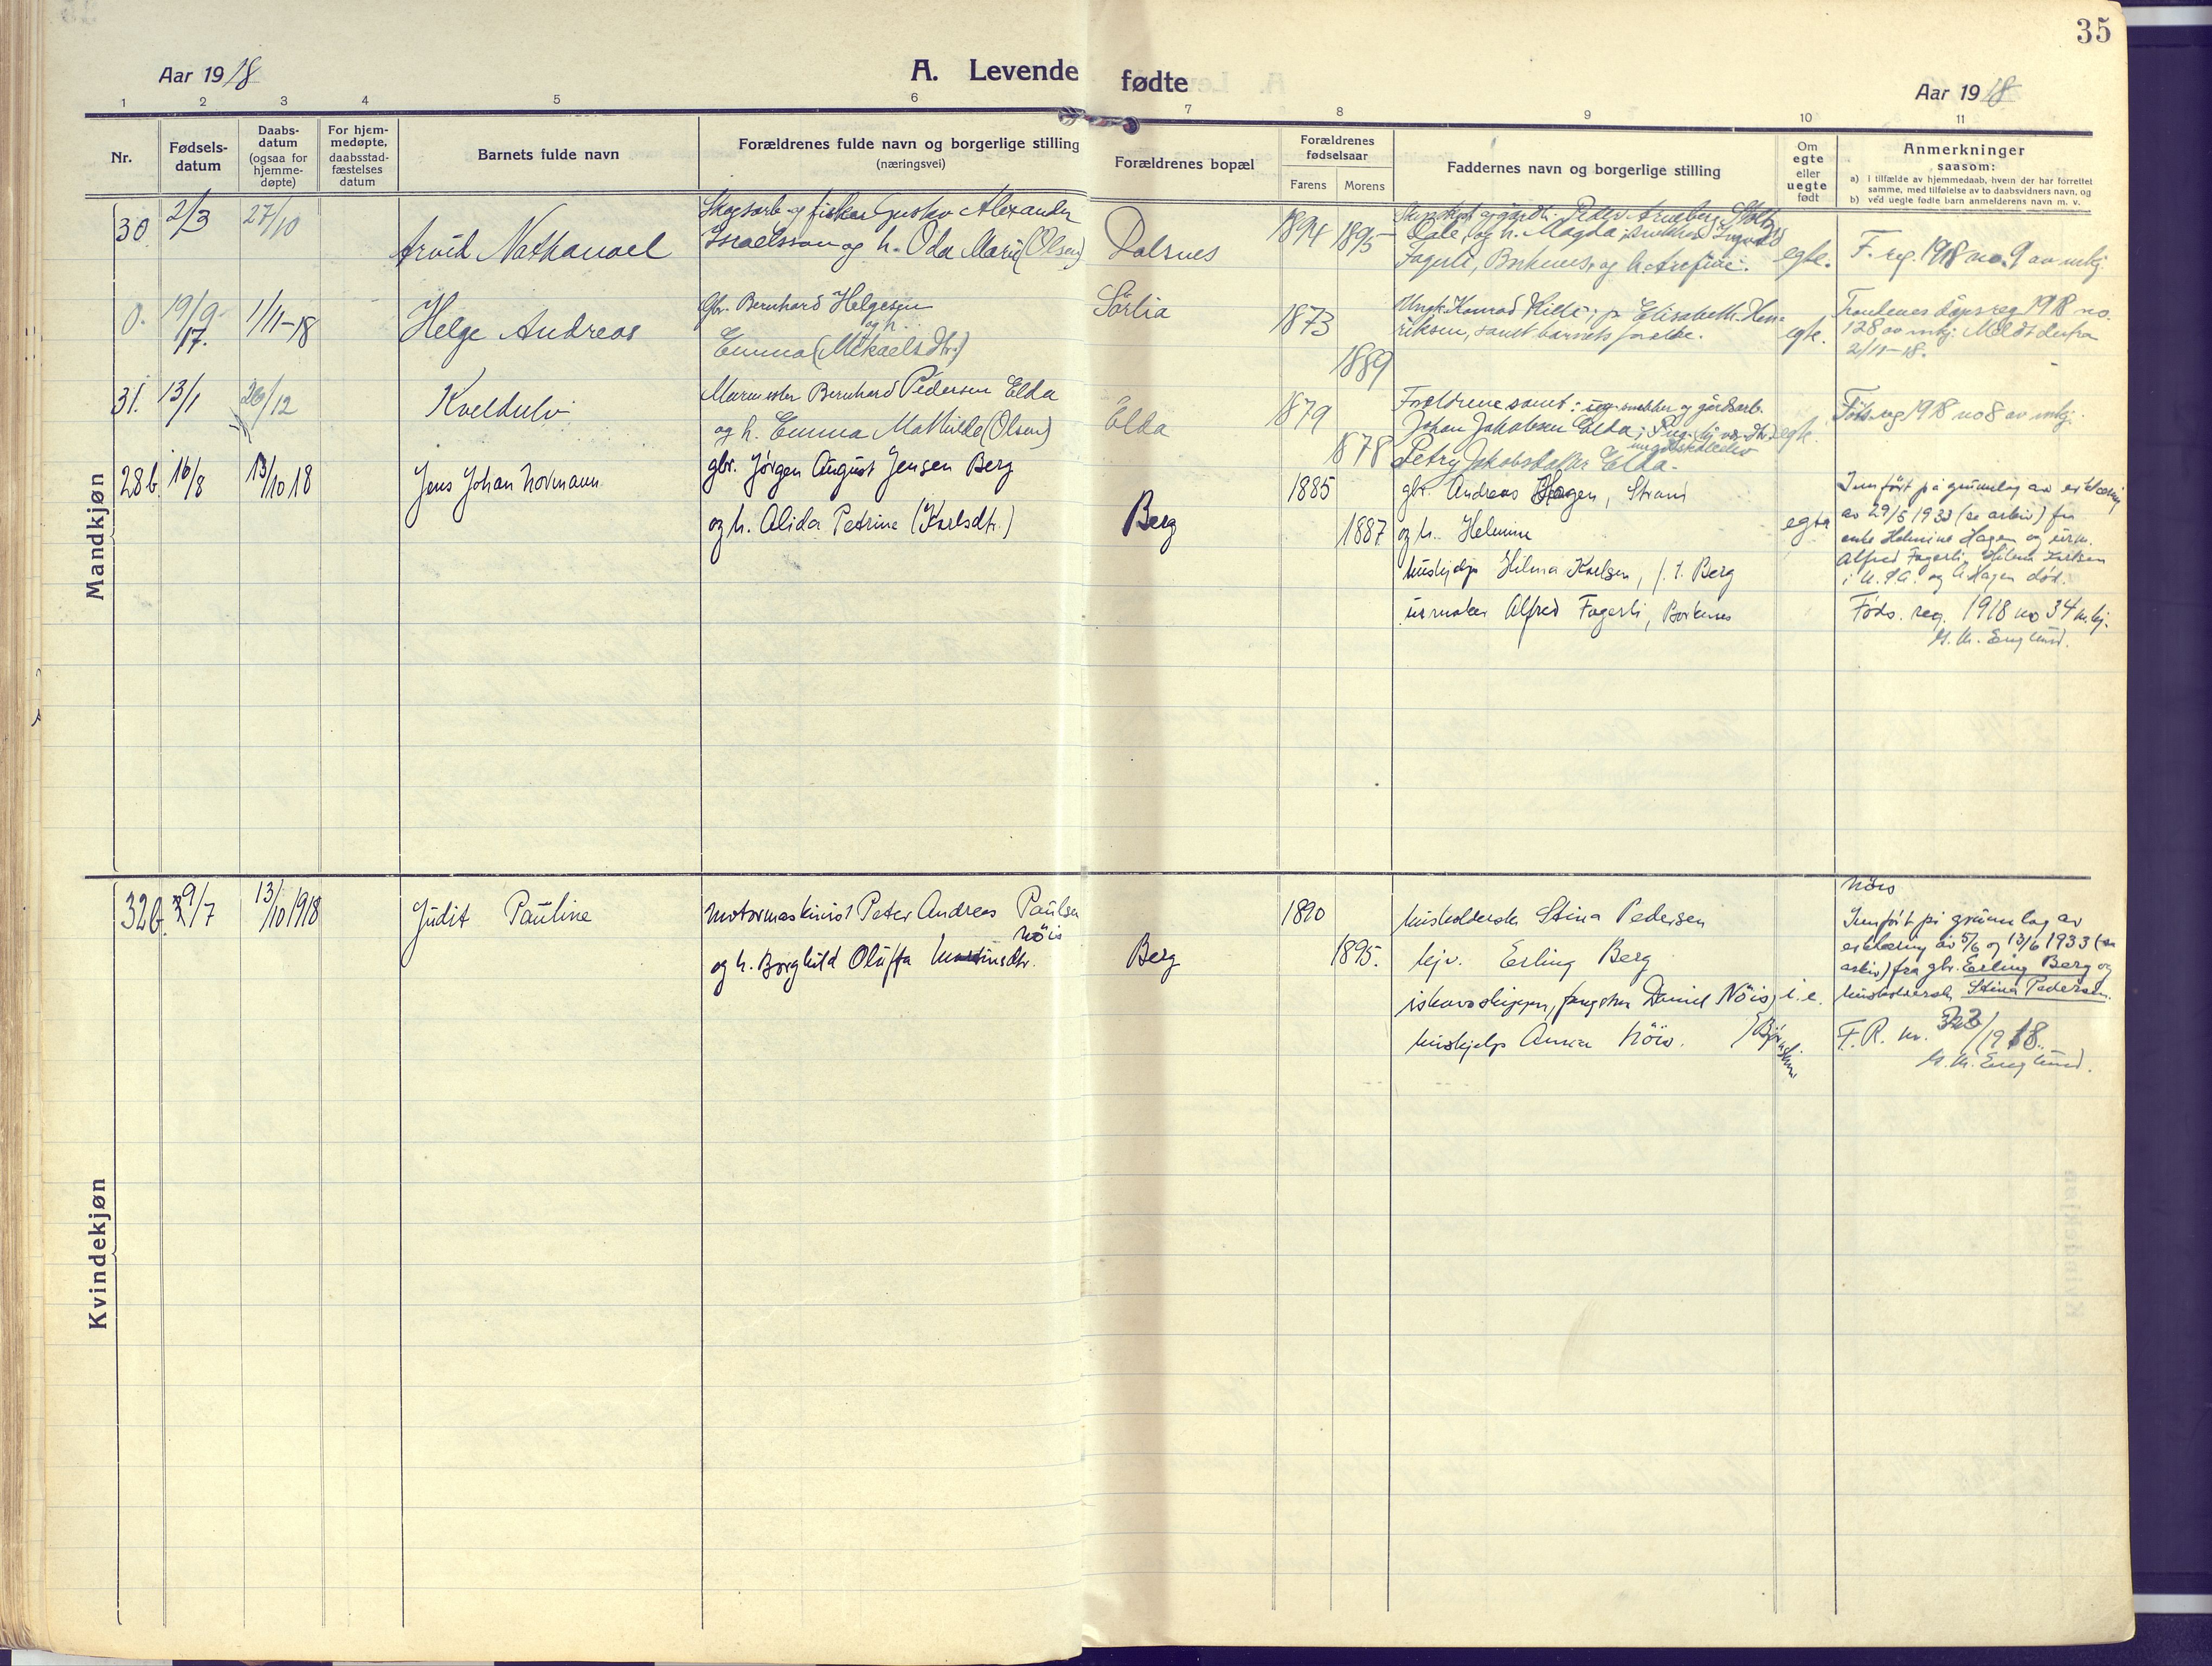 35
Aar 1918
A. Levende fødte
Aar 1918
1 2 3 4 5 6 7 8 9 10 11
Nr.
Fødsels-
datum
Daabs-
datum
(ogsaa for
hjemme-
døpte)
For hjem-
medøpte,
daabsstad-
fæstelses
datum
Barnets fulde navn
Forældrenes fulde navn og borgerlige stilling
(næringsvei)
Forældrenes bopæl
Forældrenes
fødselsaar
Farens Morens
Faddernes navn og borgerlige stilling
Om
egte
eller
uegte
født
Anmerkninger
saasom:
a) i tilfælde av hjemmedaab, hvem der har forrettet
samme, med tilføielse av to daabsvidners navn, og
b) ved uegte fødte barn anmelderens navn m. v.
Mandkjøn
30 2/3 27/10
Arvid Nathanael
Skogsarb. og fisker Gustav Alexander
Israelsson og h. Oda Marie (Olsen)
Dalsnes
1894 1895
Dale, og h. Magda;
Fagerli, Borkenes, og h.
egte.
F. reg. 1918 no. 9 av mkj.
0. 19/9-
17. 1/11-18
Helge Andreas
Gbr. Bernhard Helgesen
og h.
Emma (Mikaelsdtr.)
Sørlia
1873
1889
Ungk. Konrad ; p. Elisabeth Hen-
riksen, samt barnets foreldre.
egte.
Trondenes dåpsreg 1918 no.
128 av mkj. Meldt derfra
2/11-18.
31. 13/1 26/12
Kveldulv
Murmester Bernhard Pedersen Elda
og h. Emma Mathilde (Olsen)
Elda
1879
1878
Foreldrene samt: snekker og gårdsarb.
Johan Jakobsen Elda;
Petry Jakobsdatter Elda.
egte.
Føds. reg 1918 no 8 av mkj.
28b. 16/8 13/10 18
Jens Johan Normann
gbr. Jørgen August Jensen Berg
og h. Alida Petrine (Karlsdtr.)
Berg
1885
1887
gbr. Andreas Hagen, Strand
og h. Helmine
hushjelp Hilma Karlsen, f. t. Berg
urmaker Alfred Fagerli, Borkenes
egte
Innført på grunnlag av erklæring
av 29/5 1933 (se arkiv) fra
enke Helmine Hagen og urm.
Alfred Fagerli, Hilma Karlsen
i U.S.A. og A Hagen død.
Føds. reg. 1918 no 34 m.kj.
G. M. Englund.
Kvindekjøn
32b. 9/7 13/10 1918
Judit Pauline
Motormaskinist Peter Andreas Paulsen
Nöis
og h. Borghild Oluffa Martinsdtr.
Berg
1890
1895.
husholdersk Stina Pedersen
kjv. Erling Berg
ishavsskipper, fangstm. Daniel Nöis, i. e.
hushjelp Anna Nöis.
Nöis
Innført på grunnlag av
erklæring av 5/6 og 13/6 1933 (se
arkiv) fra gbr. Erling Berg og
husholdersk Stina Pedersen.
F. R. nr. /1918.
G. M. Englund.